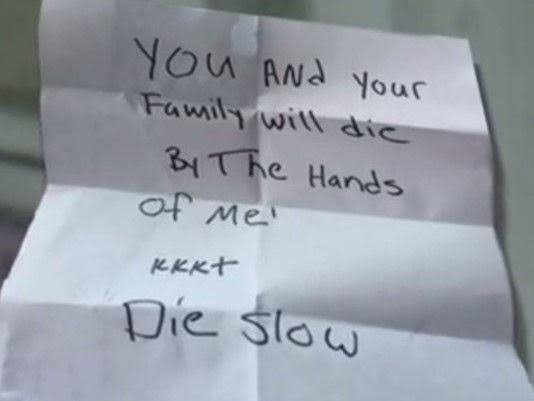 YOU ANd Your
Family will die
By The Hands
Of Me!
KKK+
Die Slow